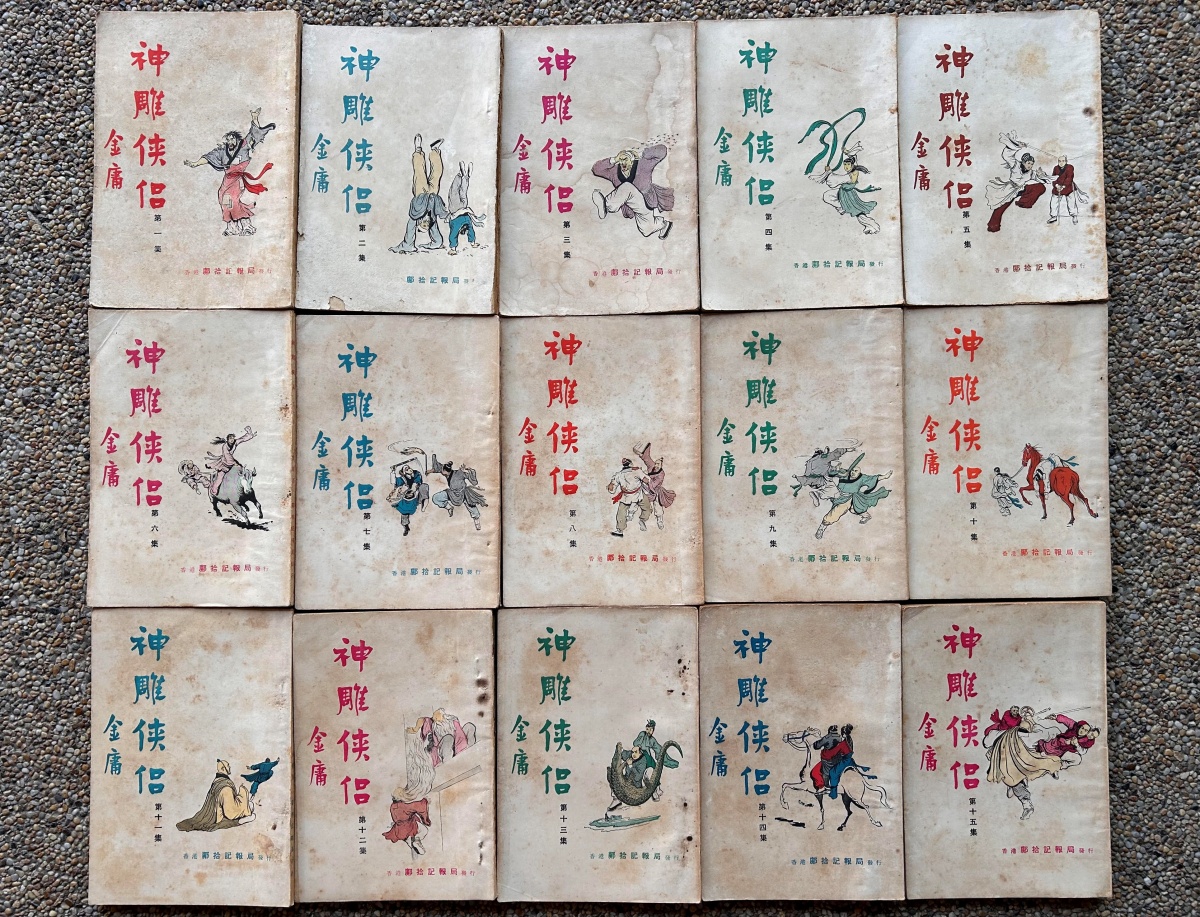 神雕侠侣
金庸
第一集
香港鄺拾記報局發行
神雕侠侣
金庸
第二集
鄺拾記報局發行
神雕侠侣
金庸
第三集
香港鄺拾記報局發行
神雕侠侣
金庸
第四集
香港鄺拾記報局發行
神雕侠侣
金庸
第五集
香港鄺拾記報局發行
神雕侠侣
金庸
第六集
香港鄺拾記報局發行
神雕侠侣
金庸
第七集
香港鄺拾記報局發行
神雕侠侣
金庸
第八集
香港鄺拾記報局發行
神雕侠侣
金庸
第九集
香港鄺拾記報局發行
神雕侠侣
金庸
第十集
香港鄺拾記報局發行
神雕侠侣
金庸
第十一集
香港鄺拾記報局發行
神雕侠侣
金庸
第十二集
香港鄺拾記報局發行
神雕侠侣
金庸
第十三集
香港鄺拾記報局發行
神雕侠侣
金庸
第十四集
香港鄺拾記報局發行
神雕侠侣
金庸
第十五集
香港鄺拾記報局發行